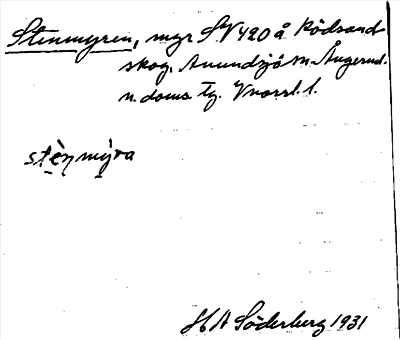 Stenmyren, myr SV 420 å Rödsand
skog, Anundsjö sn. Ångerml.
n. doms. Tg. Vnorrl. l.
stèn̥mỳra
H A Söderberg 1931